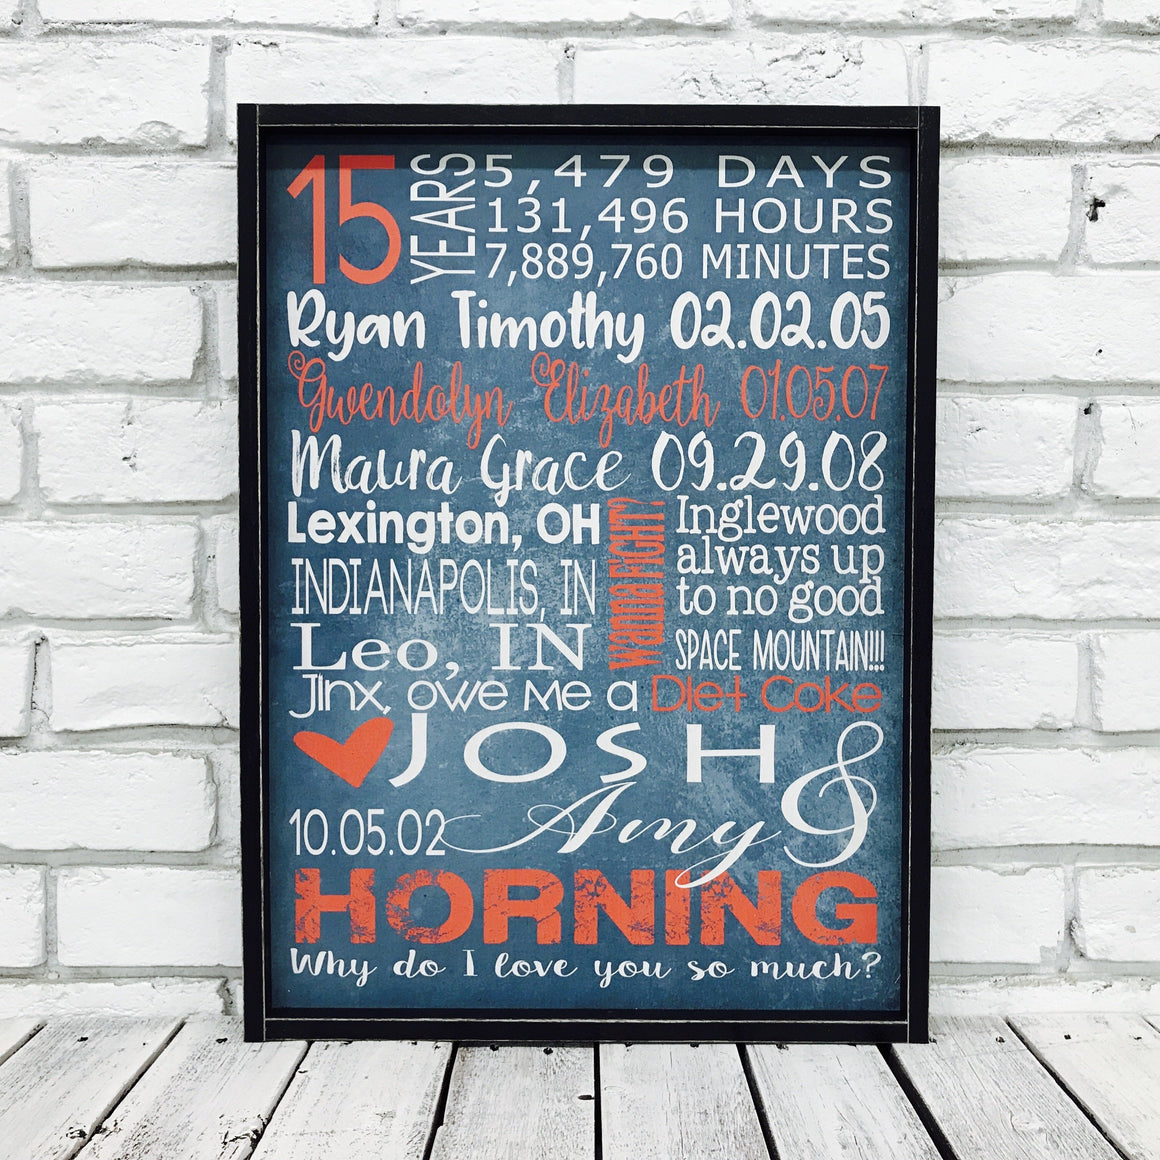 15 YEARS
5,479 DAYS
131,496 HOURS
7,889,760 MINUTES
Ryan Timothy 02.02.05
Gwendolyn Elizabeth 01.05.07
Maura Grace 09.29.08
Lexington, OH
INDIANAPOLIS, IN
Leo, IN
wanna FIGHT?
Inglewood
always up
to no good
SPACE MOUNTAIN!!!
Jinx, owe me a Diet Coke
JOSH &
10.05.02 Amy
HORNING
Why do I love you so much?